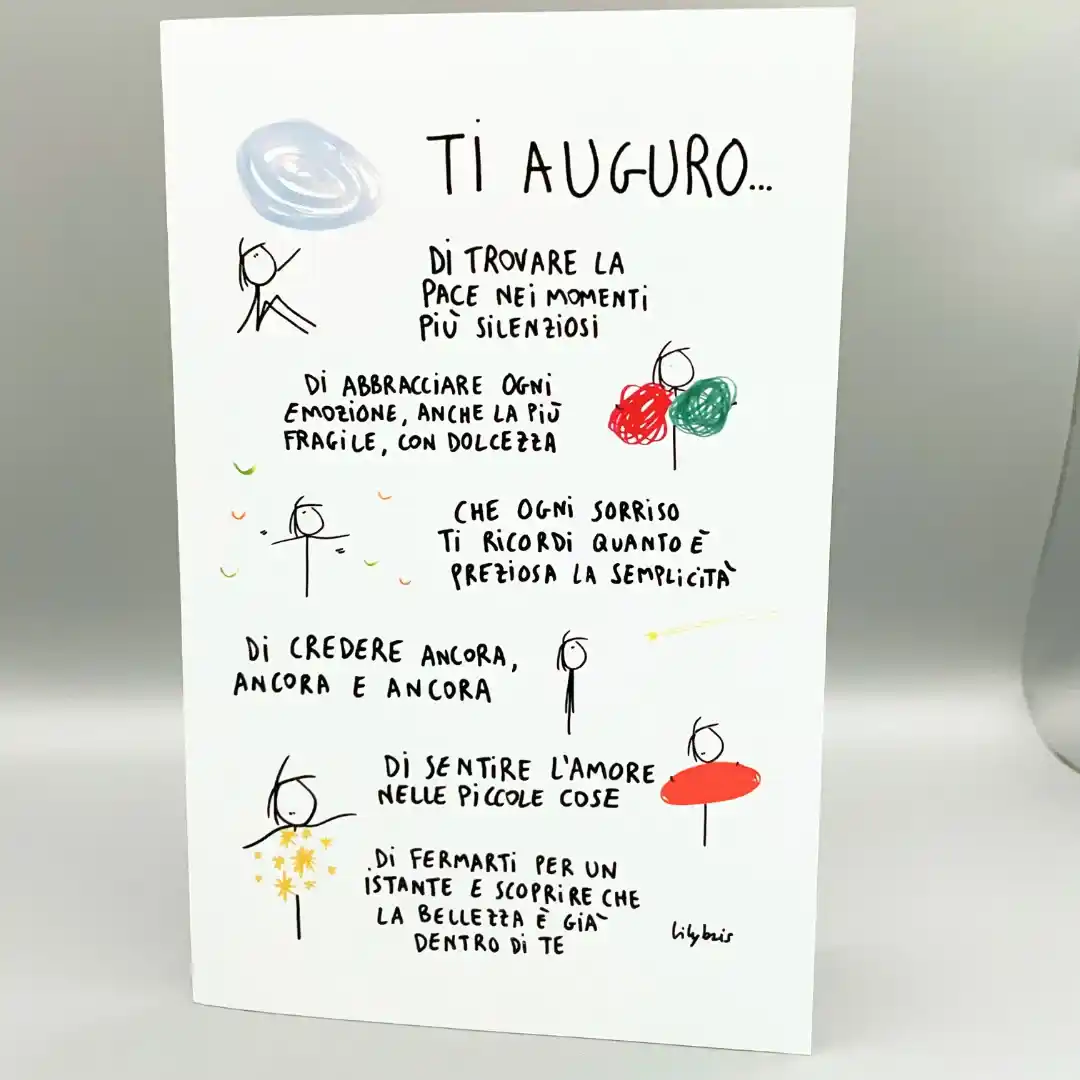 Ti AUGURO...
Di TROVARE LA
PACE NEi MOMENTi
PiÙ SiLENZiOSi
Di ABBRACCiARE OGNi
EMOZiONE, ANCHE LA PiÙ
FRAGiLE, CON DOLCEZZA
CHE OGNi SORRiSO
Ti RiCORDi QUANTO È
PREZiOSA LA SEMPLiCiTÀ
Di CREDERE ANCORA,
ANCORA E ANCORA
Di SENTiRE L'AMORE
NELLE PiCCOLE COSE
Di FERMARTi PER UN
ISTANTE E SCOPRiRE CHE
LA BELLEZZA È GiÀ
DENTRO Di TE
lilybris